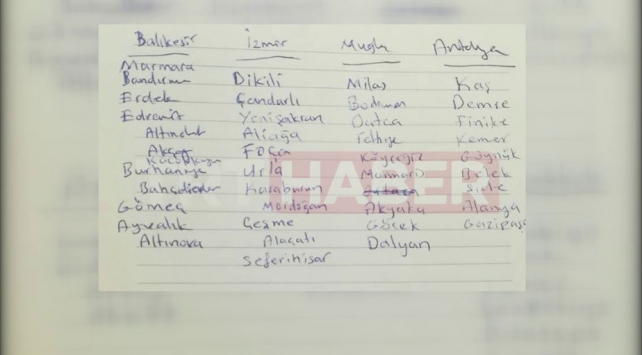 Balıkesir İzmir Muğla Antalya
Marmara
Bandırma Dikili Milas Kaş
Erdek Çandarlı Bodrum Demre
Edremit Yenişakran Datca Finike
Altınoluk Aliağa Fethiye Kemer
Akçay Foça Köyceğiz Göynük
Küçükkuyu
Burhaniye Urla Marmaris Belek
Karaburun Side
Gömeç Mordoğan Akyaka Alanya
Ayvalık Çeşme Göcek Gazipaşa
Altınova Alaçatı Dalyan
Seferihisar
HABER